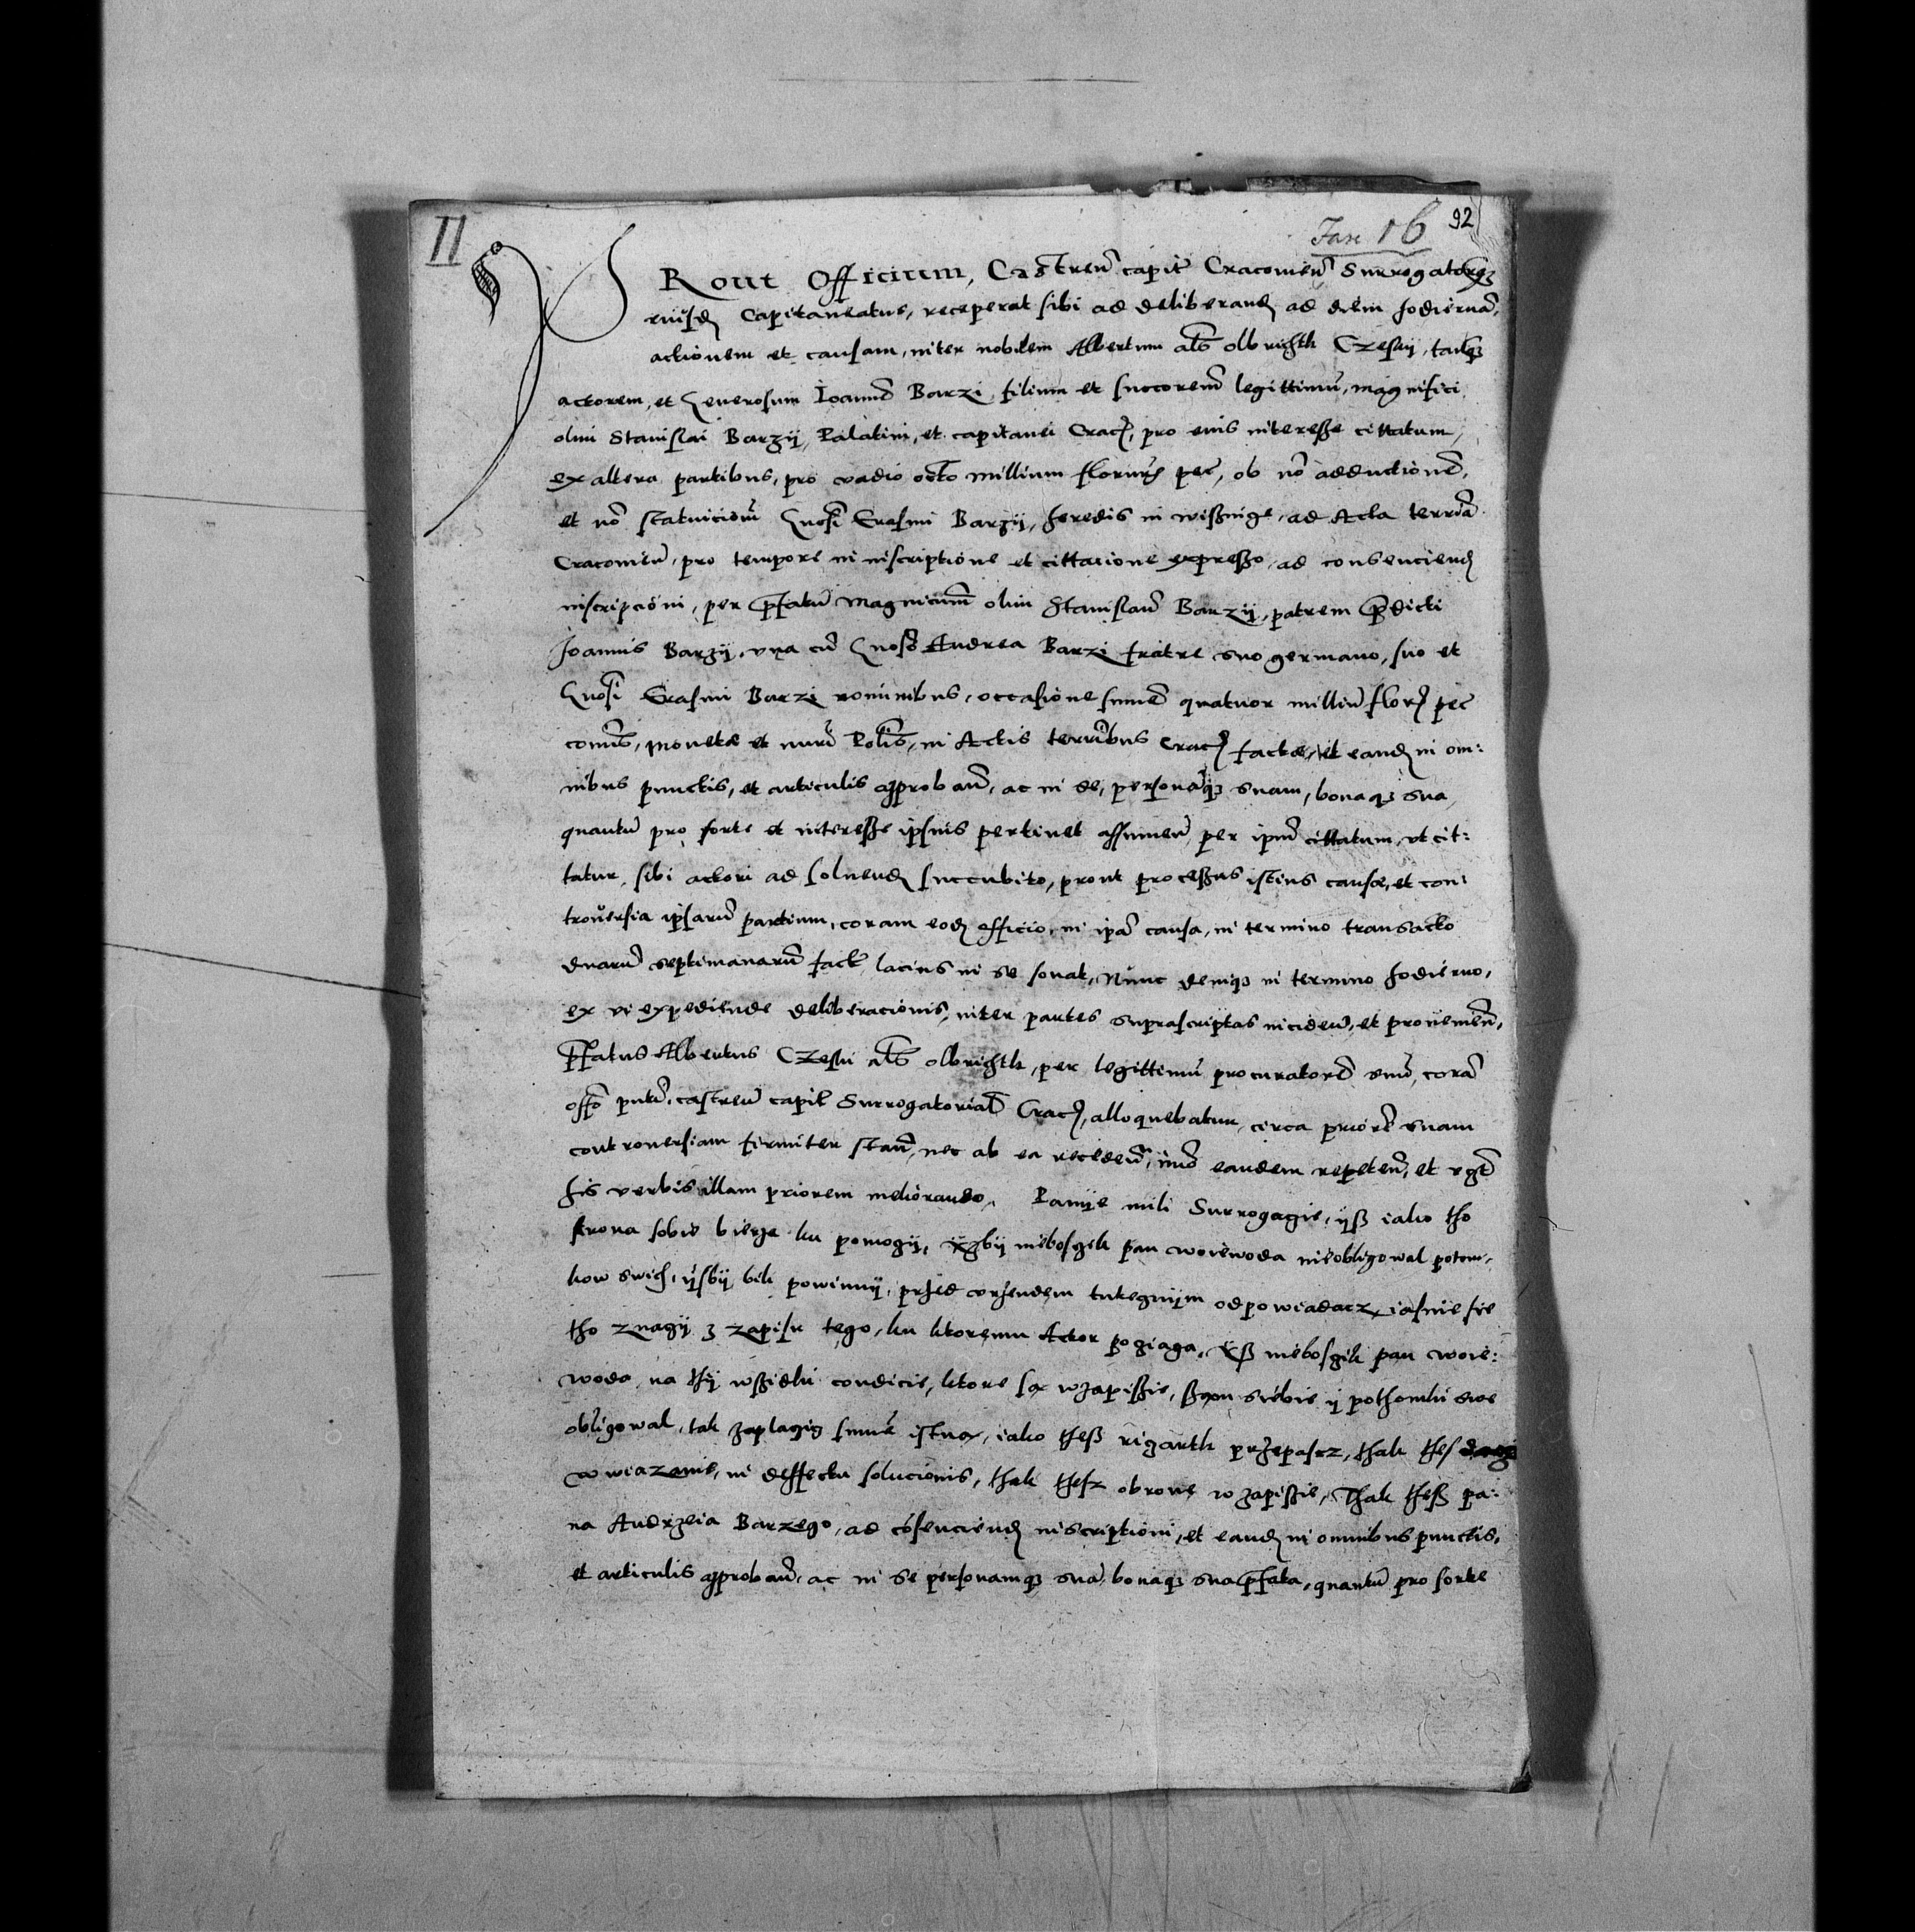 II
Fasc 16
92
PRout Officium, Castren̄ capit̄ Cracouien̄ Surrogatorq3
eiusdem Capitaneatus, receperat sibi ad deliberand ad diem hodiernā,
actionem et causam, inter nobilem Albertum al̄s olbrichth Czeskij, tanq3
actorem, et Generosum Ioannē Barzi filium et succorem̄ legittimū, magnifici
olim Stanislai Barzij, Palatini, et capitanei Crac, pro eius interesse cittatum,
ex altera partibus, pro vadio octo millium floruꝝ pec̄, ob nō adductionē,
et nō statuicioīm Gnosi Erasmi Barzij, heredis in wisznige, ad Acta terr̄ia
Cracouien̄, pro tempore in inscriptione et cittatione expresso, ad consenciend
inscripcioni, per p̄fatū Magnicum̄ olim Stanislaū Barzij, patrem p̄dicti
Joannis Barzij, vna cū Gnoso Andrea Barzi fratre suo germano, suo et
Gnosi Erasmi Barzi nominibus, occasione summē quatuor milliū flor pec̄
com̄is, monetæ et nurī Pol̄is, in Actis terr̄ibus Crac factæ, et eand in om:
nibus punctis, et articulis approban̄, ac in se, personāq3 suam, bonaq3 sua
quantū pro sorte et interesse ipsius pertinet assumen̄, per ipm̄ cittatum, vt cit:
tatur, sibi actori ad soluend succubito, prout processus istius causæ, et con:
trouersia ipsarū partium, coram eod officio, in ipā causa, in termino transacto
duarū septimanarū fact̄, lacius in se sonat, Nunc deniq3 in termino hodierno,
ex vi expediende deliberacionis, inter partes suprascriptas inciden̄, et prouenien̄,
p̄fatus Albertus Czeski al̄s olbrichth, per legittimū procuratorē suū, corā
offō pn̄ti, castren̄ capit̄ Surrogatoriali Crac, alloquebatur, circa priorē suam
controuersiam firmiter stan̄, nec ab ea receden̄, imo eandem repeten̄, et
his verbis illam priorem meliorando. Panije mili Surrogagie, ijsz iako tho
strona sobie bierze ku pomogij, izbij niebosgik pan woiewoda nieobligowal potom,
kow swich, ijsbij bili powinnij, przed vrzendem tutegnijm odpowiadacz, iasnie sie
tho znagij z zapisu tego, ku ktoremu Actor poziaga, isz niebosgik pan woie:
woda, na thij wszidki condicie, ktore są w zapiszie, sząm siebie ij pothomki swe
obligowal, tak zaplagig summē istną, iako thesz rigarth przepascz, thak thes dacz
w wiazanie, in deffectu solucionis, thak thesz obrone w zapiszie, Thak thesz pa:
na Andrzeia Barzego, ad cōsenciend inscriptioni, et eand in omnibus punctis,
et articulis approban̄, ac in se personamq3 suā, bonaq3 sua p̄fata, quantū pro sorte